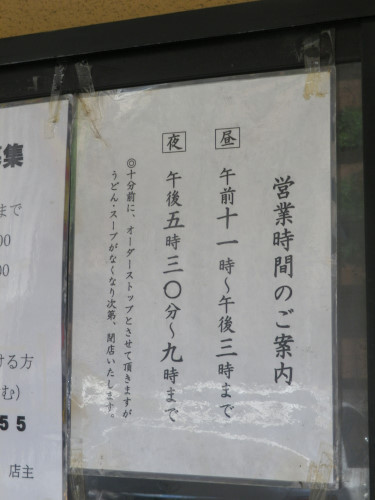 営業時間のご案内
昼 午前十一時〜午後三時まで
夜 午後五時三〇分〜九時まで
◎十分前に、オーダーストップとさせて頂きますが
うどん・スープがなくなり次第、閉店いたします。
集
まで
00
00
ける方
む)
55
店主